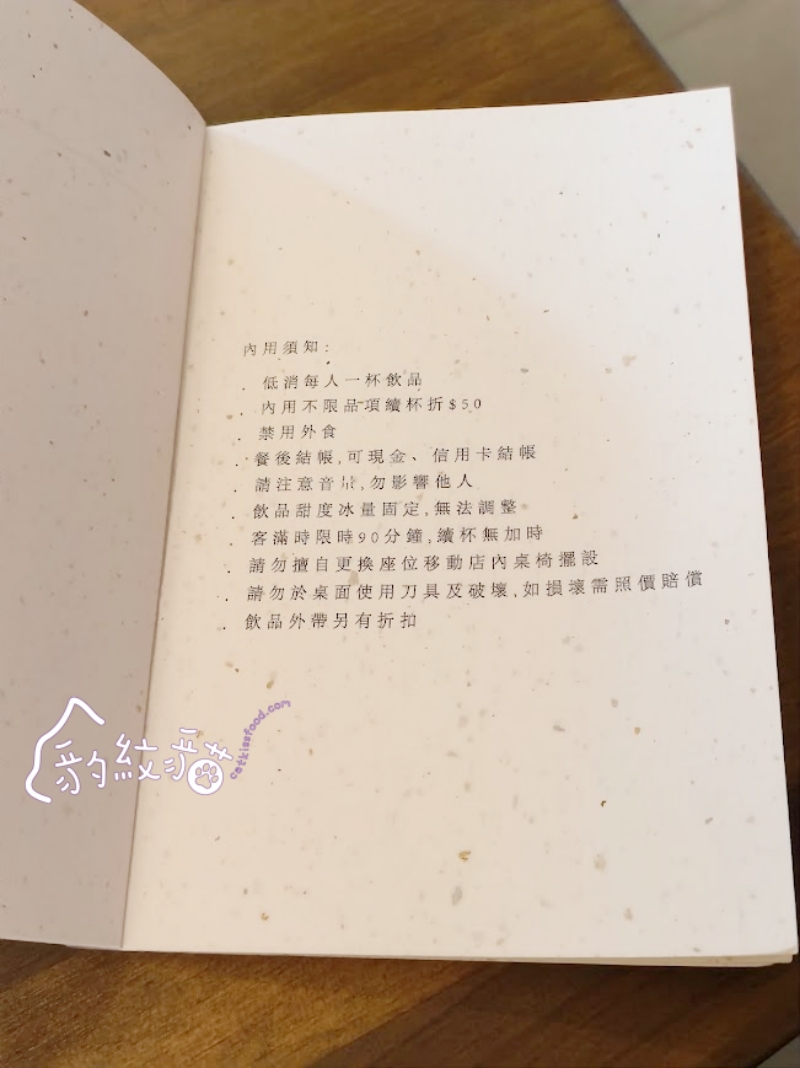 內用須知:
. 低消每人一杯飲品
. 內用不限品項續杯折$50
. 禁用外食
. 餐後結帳,可現金、信用卡結帳
. 請注意音量,勿影響他人
. 飲品甜度冰量固定,無法調整
. 客滿時限時90分鐘,續杯無加時
. 請勿擅自更換座位移動店內桌椅擺設
. 請勿於桌面使用刀具及破壞,如損壞需照價賠償
. 飲品外帶另有折扣
豹紋貓
catkissfood.com